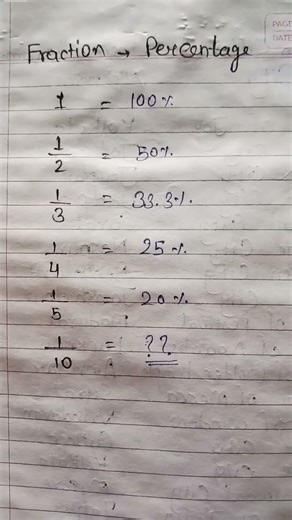 PAGE
DATE
Fraction → Percentage
1 = 100%
1/2 = 50%.
1/3 = 33.3%.
1/4 = 25%
1/5 = 20%
1/10 = ??